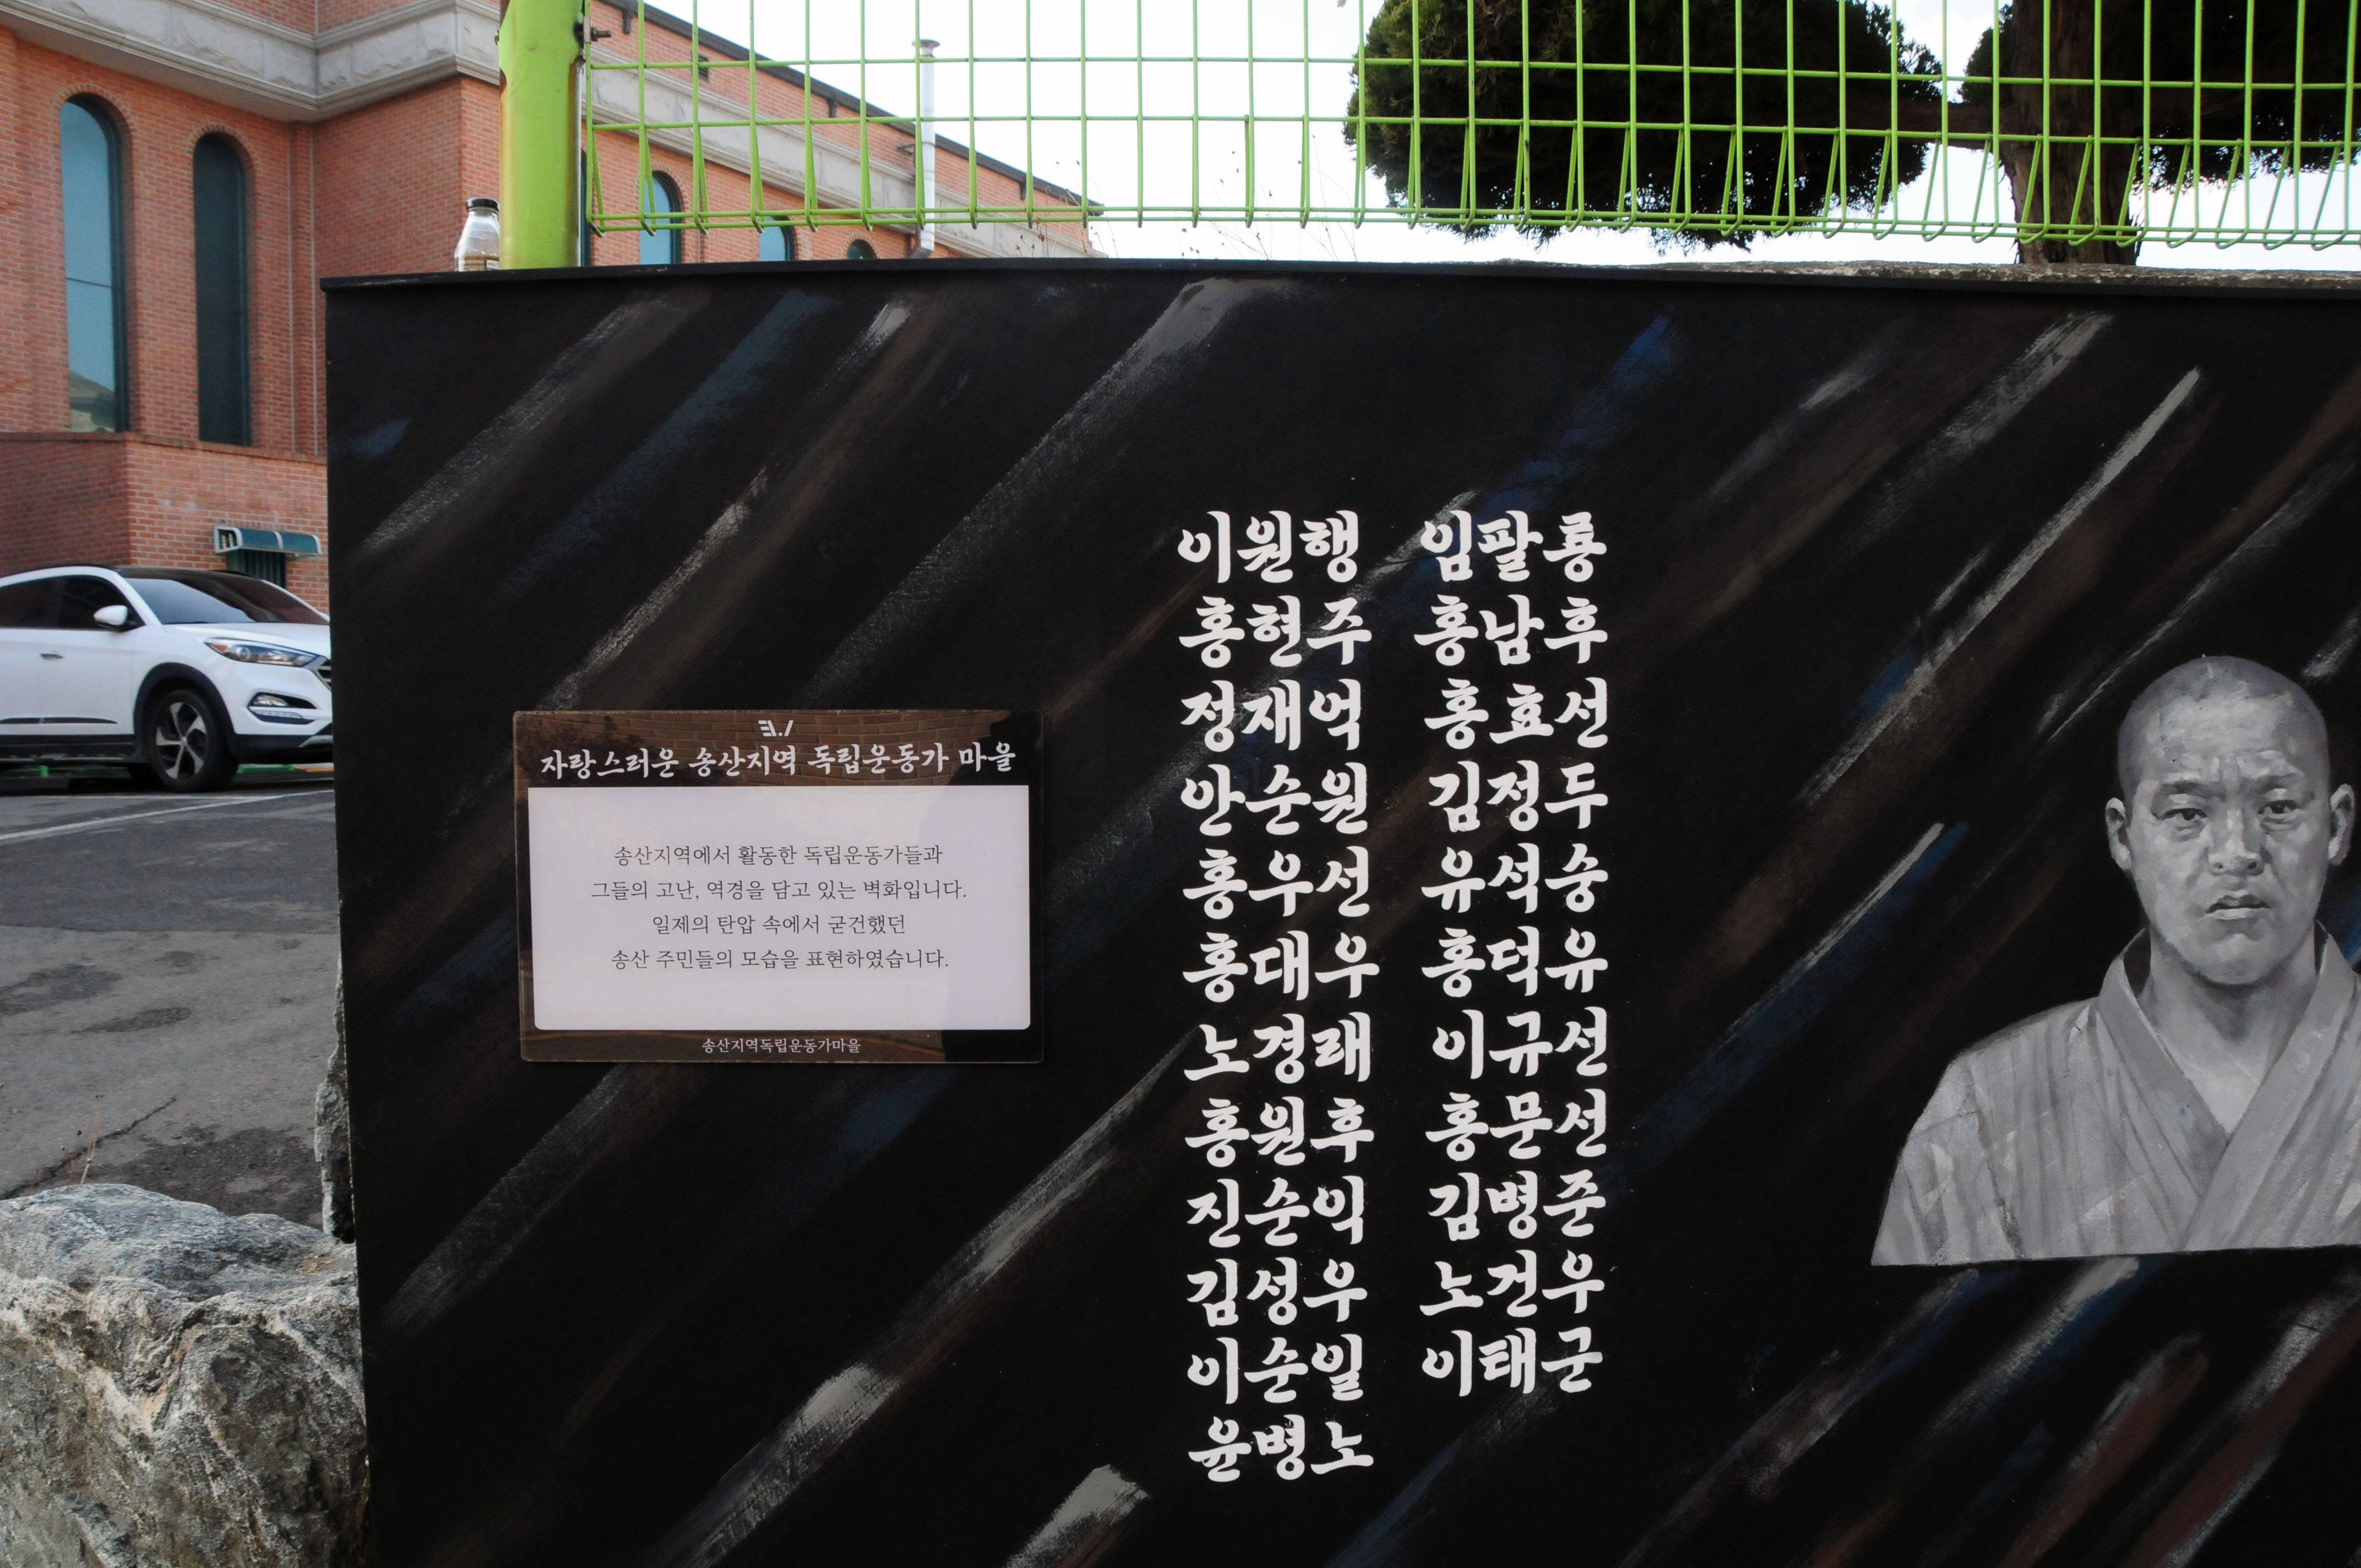 3.1
자랑스러운 송산지역 독립운동가 마을
송산지역에서 활동한 독립운동가들과
그들의 고난, 역경을 담고 있는 벽화입니다.
일제의 탄압 속에서 굳건했던
송산 주민들의 모습을 표현하였습니다.
송산지역독립운동가마을
이원행 임팔룡
홍현주 홍남후
정재억 홍효선
안순원 김정두
홍우선 유석숭
홍대우 홍덕유
노경래 이규선
홍원후 홍문선
진순익 김병준
김성우 노건우
이순일 이태군
윤병노